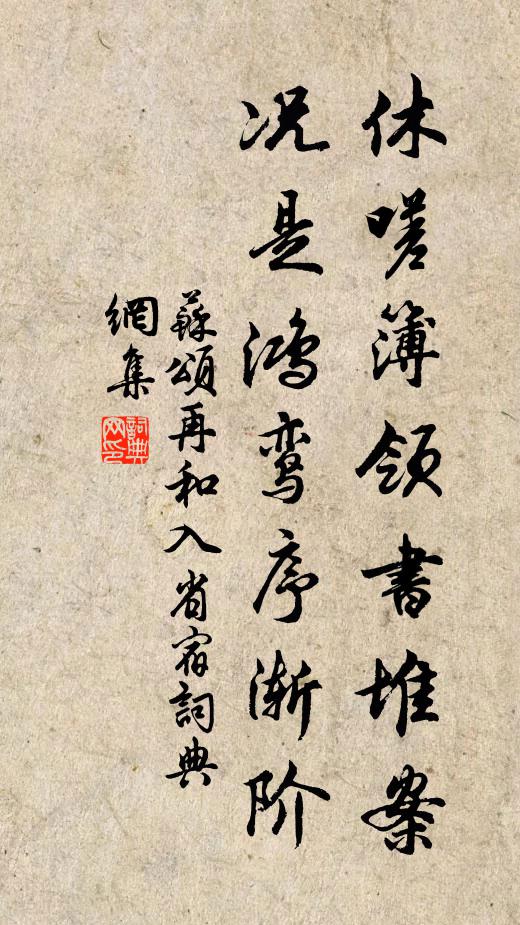 休嗟簿领書堆案
况是鸿鸾序渐阶
蘇頌再和入省宿詞典
網集
詞典網印